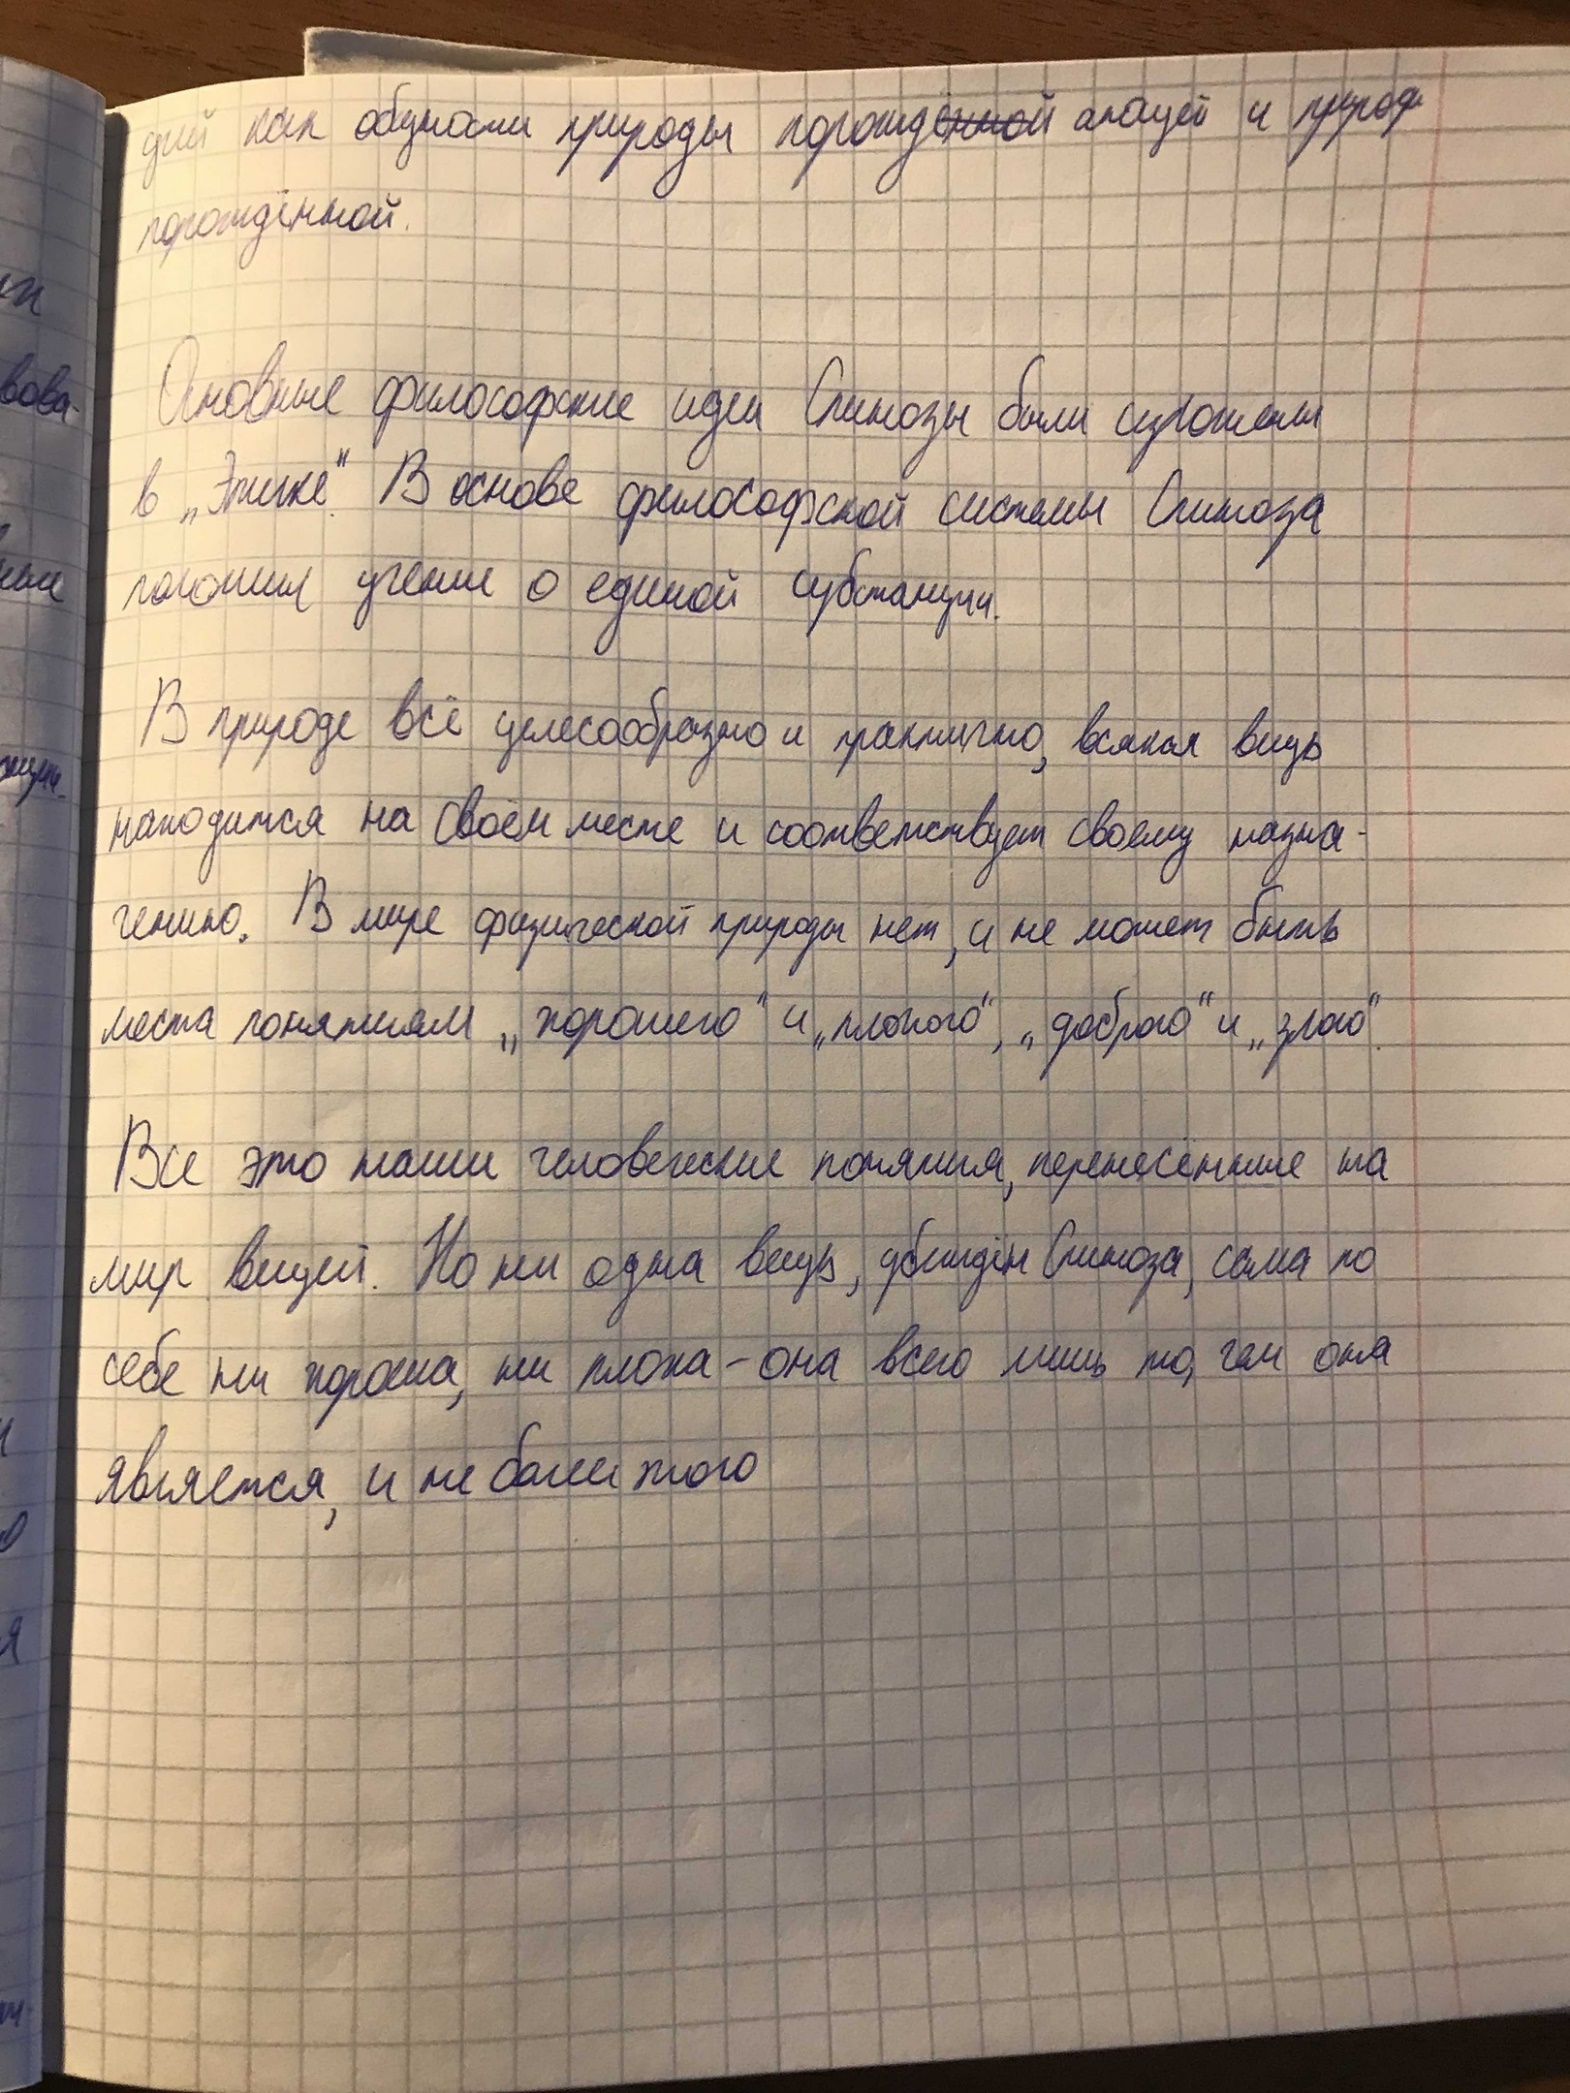 дий как общности природы порождающей и природ
порождённой.
Основные философские идеи Спинозы были изложены
в „Этике“. В основе философской системы Спиноза
положил учение о единой субстанции.
В природе всё целесообразно и практично, всякая вещь
находится на своём месте и соответствует своему назна-
чению. В мире физической природы нет, и не может быть
места понятиям „хорошего“ и „плохого“, „доброго“ и „злого“.
Все это наши человеческие понятия, перенесённые на
мир вещей. Но ни одна вещь, убеждён Спиноза, сама по
себе ни хороша, ни плоха – она всего лишь то, чем она
является, и не более того